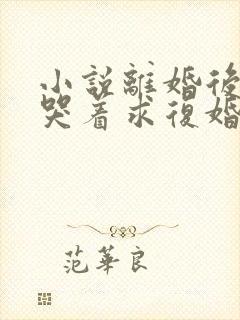 小說離婚後
哭着求復婚
范華良